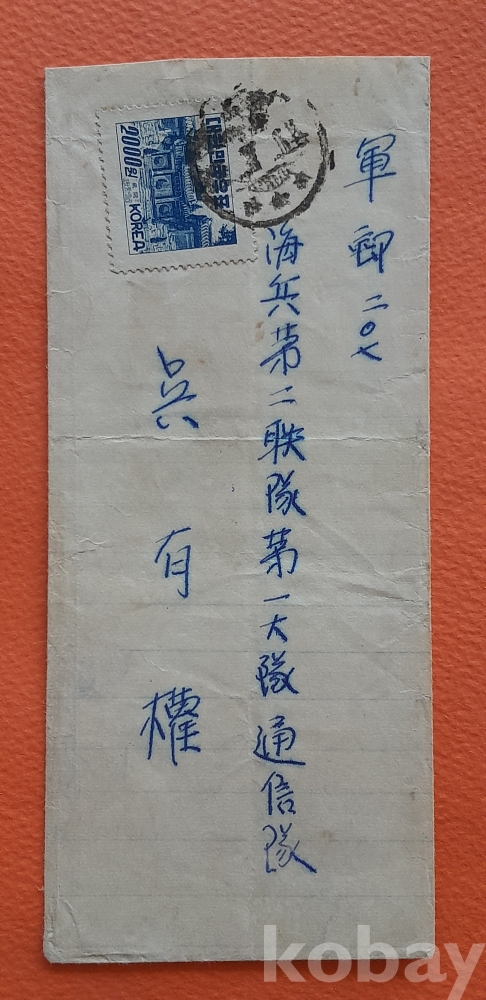 軍郵二〇七
海兵第二聯隊第一大隊通信隊
吳有權
대한민국우표
2000원
KOREA
kobay